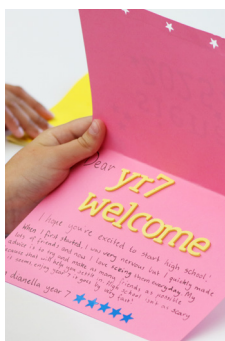 Dear
yr7
welcome
I hope you're excited to start high school.
When I first started, I was very nervous but I quickly made
lots of friends and now I love seeing them everyday. My
advice is to try and make as many friends as possible
because that will help you heaps. High school isn't as scary
as it seems, enjoy year 7 it goes by very fast!
dianella year 7